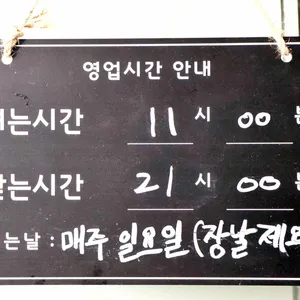 영업시간 안내
는시간 11 시 00 분
는시간 21 시 00 분
는날 : 매주 일요일 (장날 제외